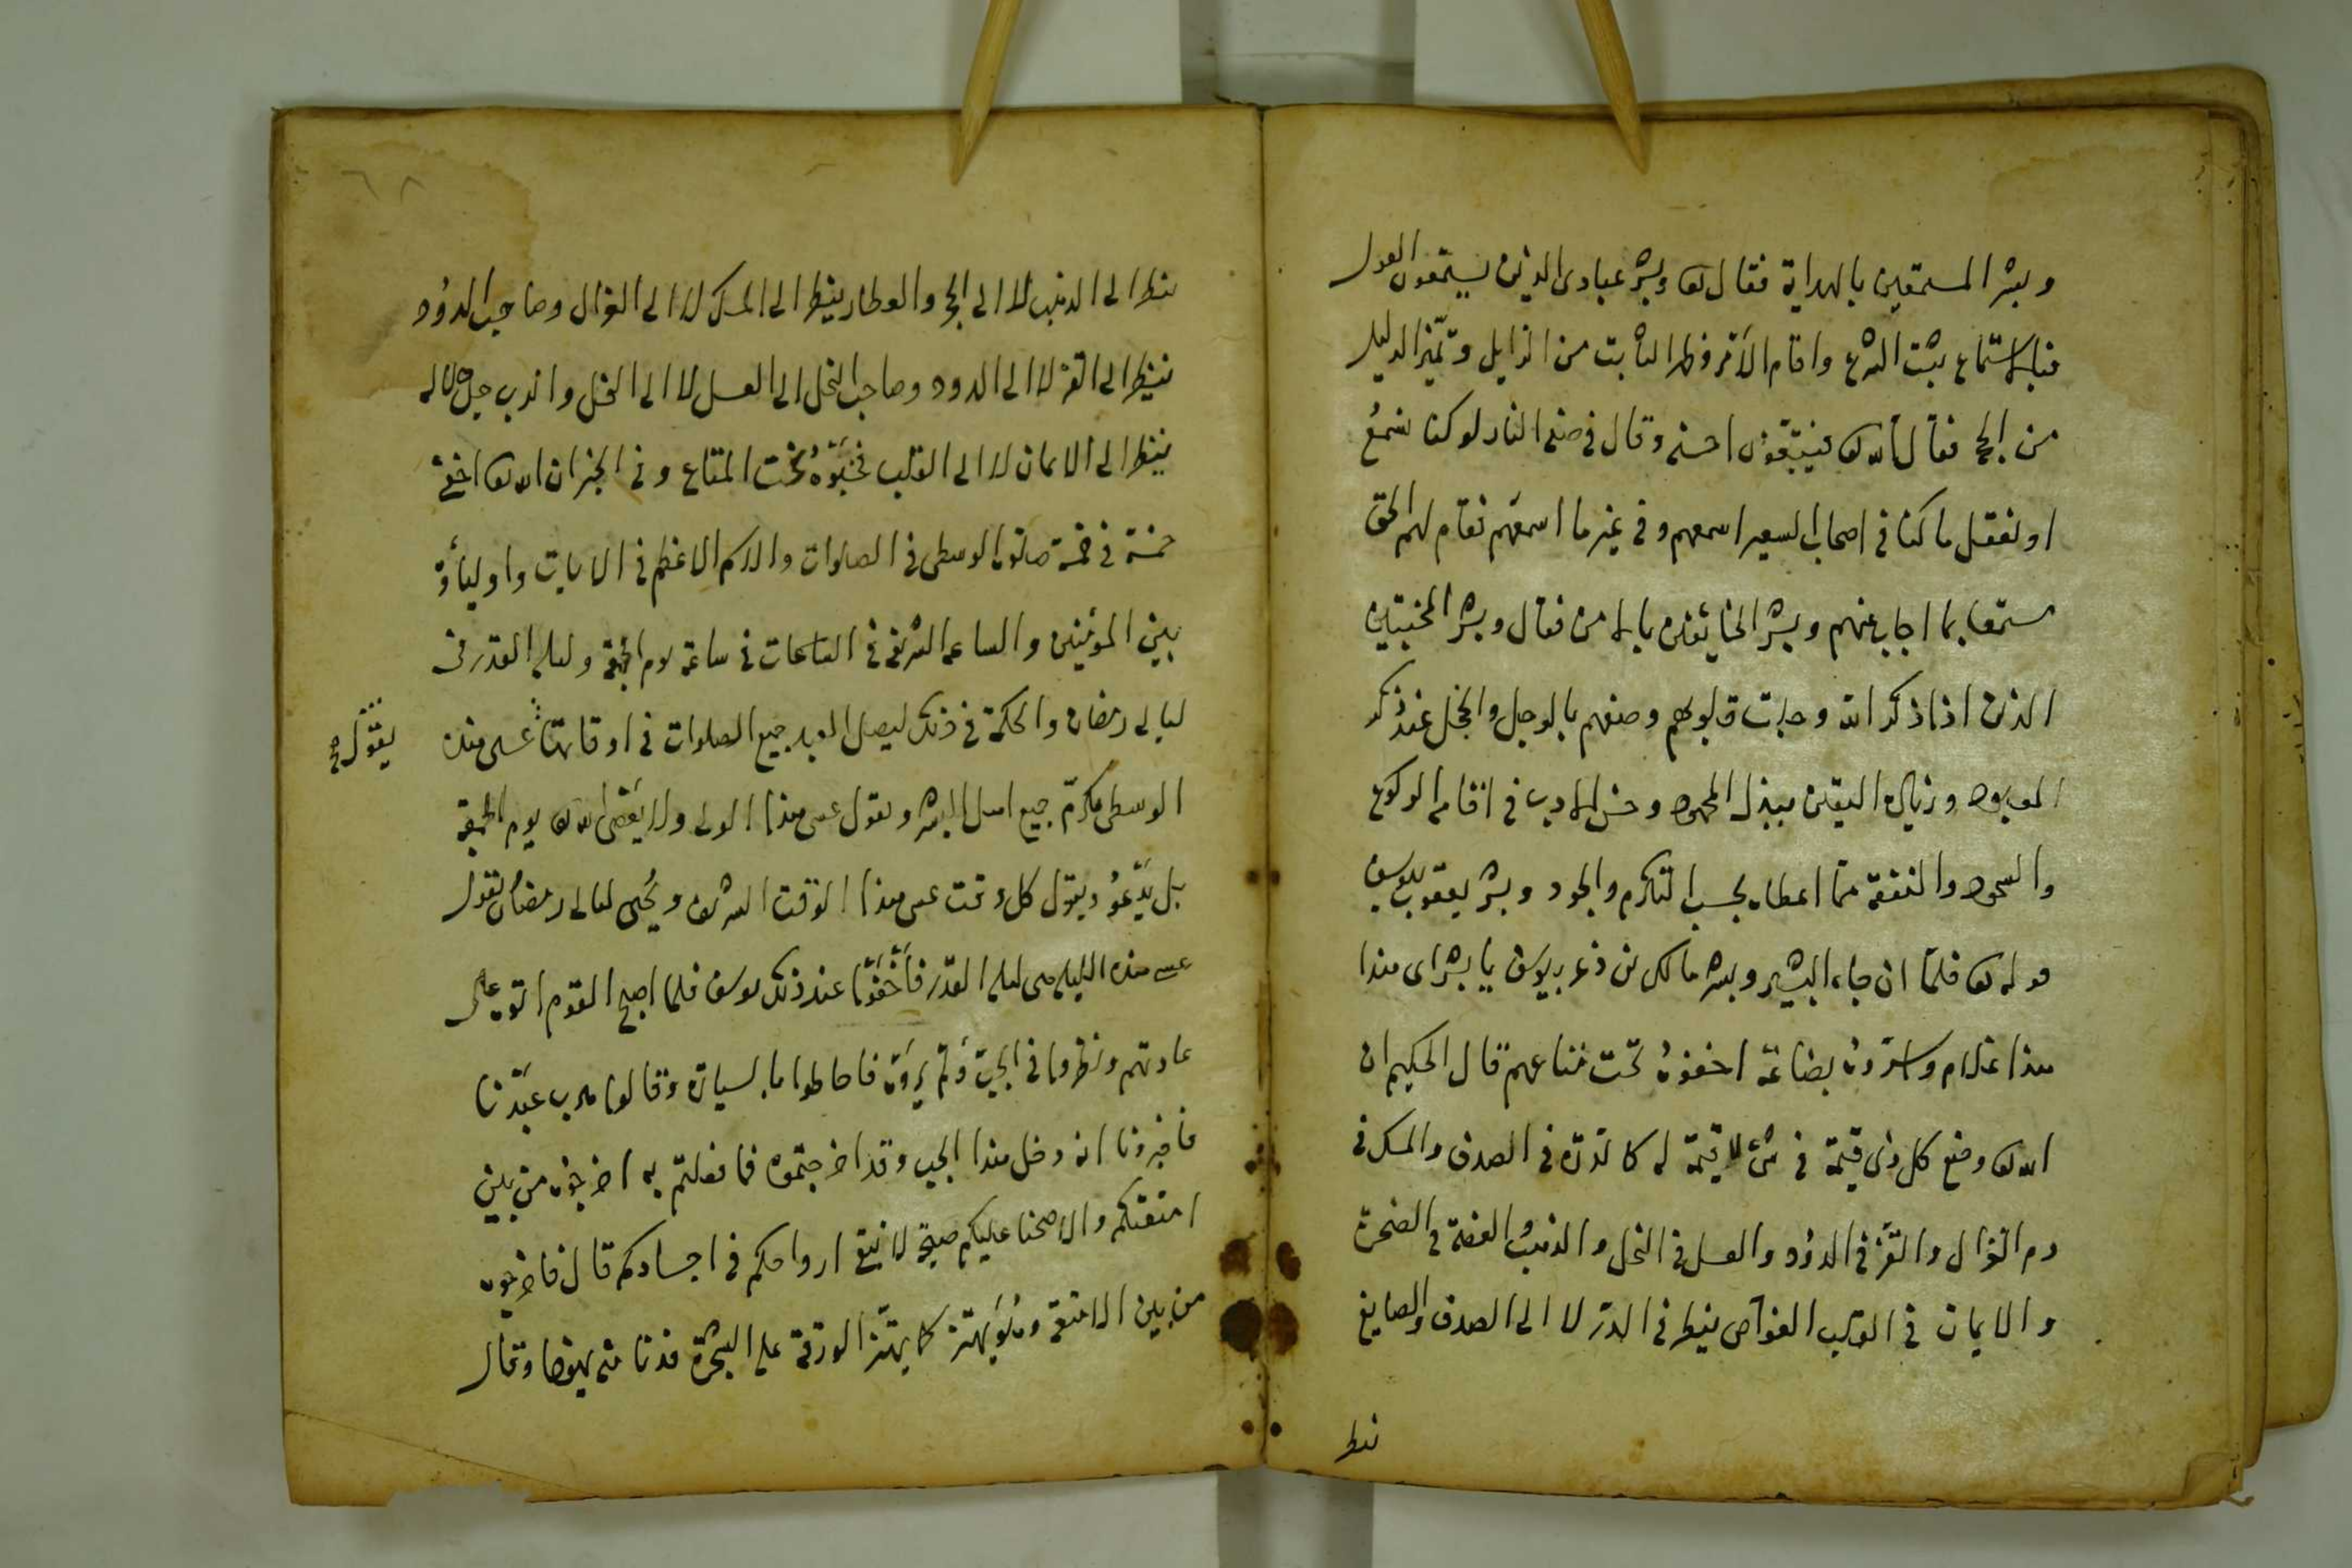 وبشر المستمعين بالهداية فقال تعالى وبشر عبادى الذين يستمعون القول
فبالاستماع يثبت الشرع واقام الامر وظهر الثابت من الزايل وتميز الدليل
من الحج فقال الله تعالى فيتبعون احسنه وقال فى صفة النار لو كنا نسمع
او نعقل ما كنا فى اصحاب السعير اسمعهم وفى غير ما اسمعهم فقام لهم الحق
مستمعا بما اجاب عنهم وبشر الخائفين بالامن فقال وبشر المخبتين
الذين اذا ذكر الله وجلت قلوبهم وصفهم بالوجل والخجل عند ذكر
المعبود وزيادة اليقين ببذل المجهود وحسن الادب فى اقامة الركوع
والسجود والنفقة مما اعطاه بحسب التكرم والجود وبشر يعقوب بيوسف
قوله تعالى فلما ان جاء البشير وبشر مالك بن ذعر بيوسف يا بشراى هذا
هذا غلام واسروه بضاعة اخفوه تحت متاعهم قال الحكيم ان
الله تعالى وضع كل ذى قيمة فى شئ لا قيمة له كالدرة فى الصدف والمسك فى
دم الغزال والقز فى الدود والعسل فى النحل والذهب والفضة فى الصخرة
والايمان فى القلب الغواص ينظر فى الدر لا الى الصدف والصايغ
ينظر
ينظر الى الذهب لا الى الحجر والعطار ينظر الى المسك لا الى الغزال وصاحب الدود
ينظر الى القز لا الى الدود وصاحب النحل الى العسل لا الى النحل والرب جل جلاله
ينظر الى الايمان لا الى القلب فخبوه تحت المتاع وفى الخبر ان الله تعالى اخفى
خمسة فى خمسة صلوة الوسطى فى الصلوات والاسم الاعظم فى الايات واولياؤه
بين المؤمنين والساعة الشريفة فى الساعات فى ساعة يوم الجمعة وليلة القدر فى
ليالى رمضان والحكمة فى ذلك ليصلى العبد جميع الصلوات فى اوقاتها عسى هذه
يقول
الوسطى ويكرم جميع اهل البشر ويقول عسى هذا الولى ولا يعصى الله تعالى يوم الجمعة
بل يدعو ويقول كل وقت عسى هذا الوقت الشريف ويحيى ليالى رمضان يقول
عسى هذه الليلة هى ليلة القدر فاخفوا عند ذلك يوسف فلما اصبح القوم اتوه على
عادتهم ونظروا فى الجب ولم يروه فاحاطوا بالسيارة وقالوا هرب عبدنا
فاخبرونا انه دخل هذا الجب وقد اخرجتموه فما فعلتم به اخرجوه من بين
امتعتكم والا صحنا عليكم صيحة لا تبقى ارواحكم فى اجسادكم قال فاخرجوه
من بين الامتعة وهو يهتز كما يهتز الورقة على الشجرة فدنا منه يهوذا وقال